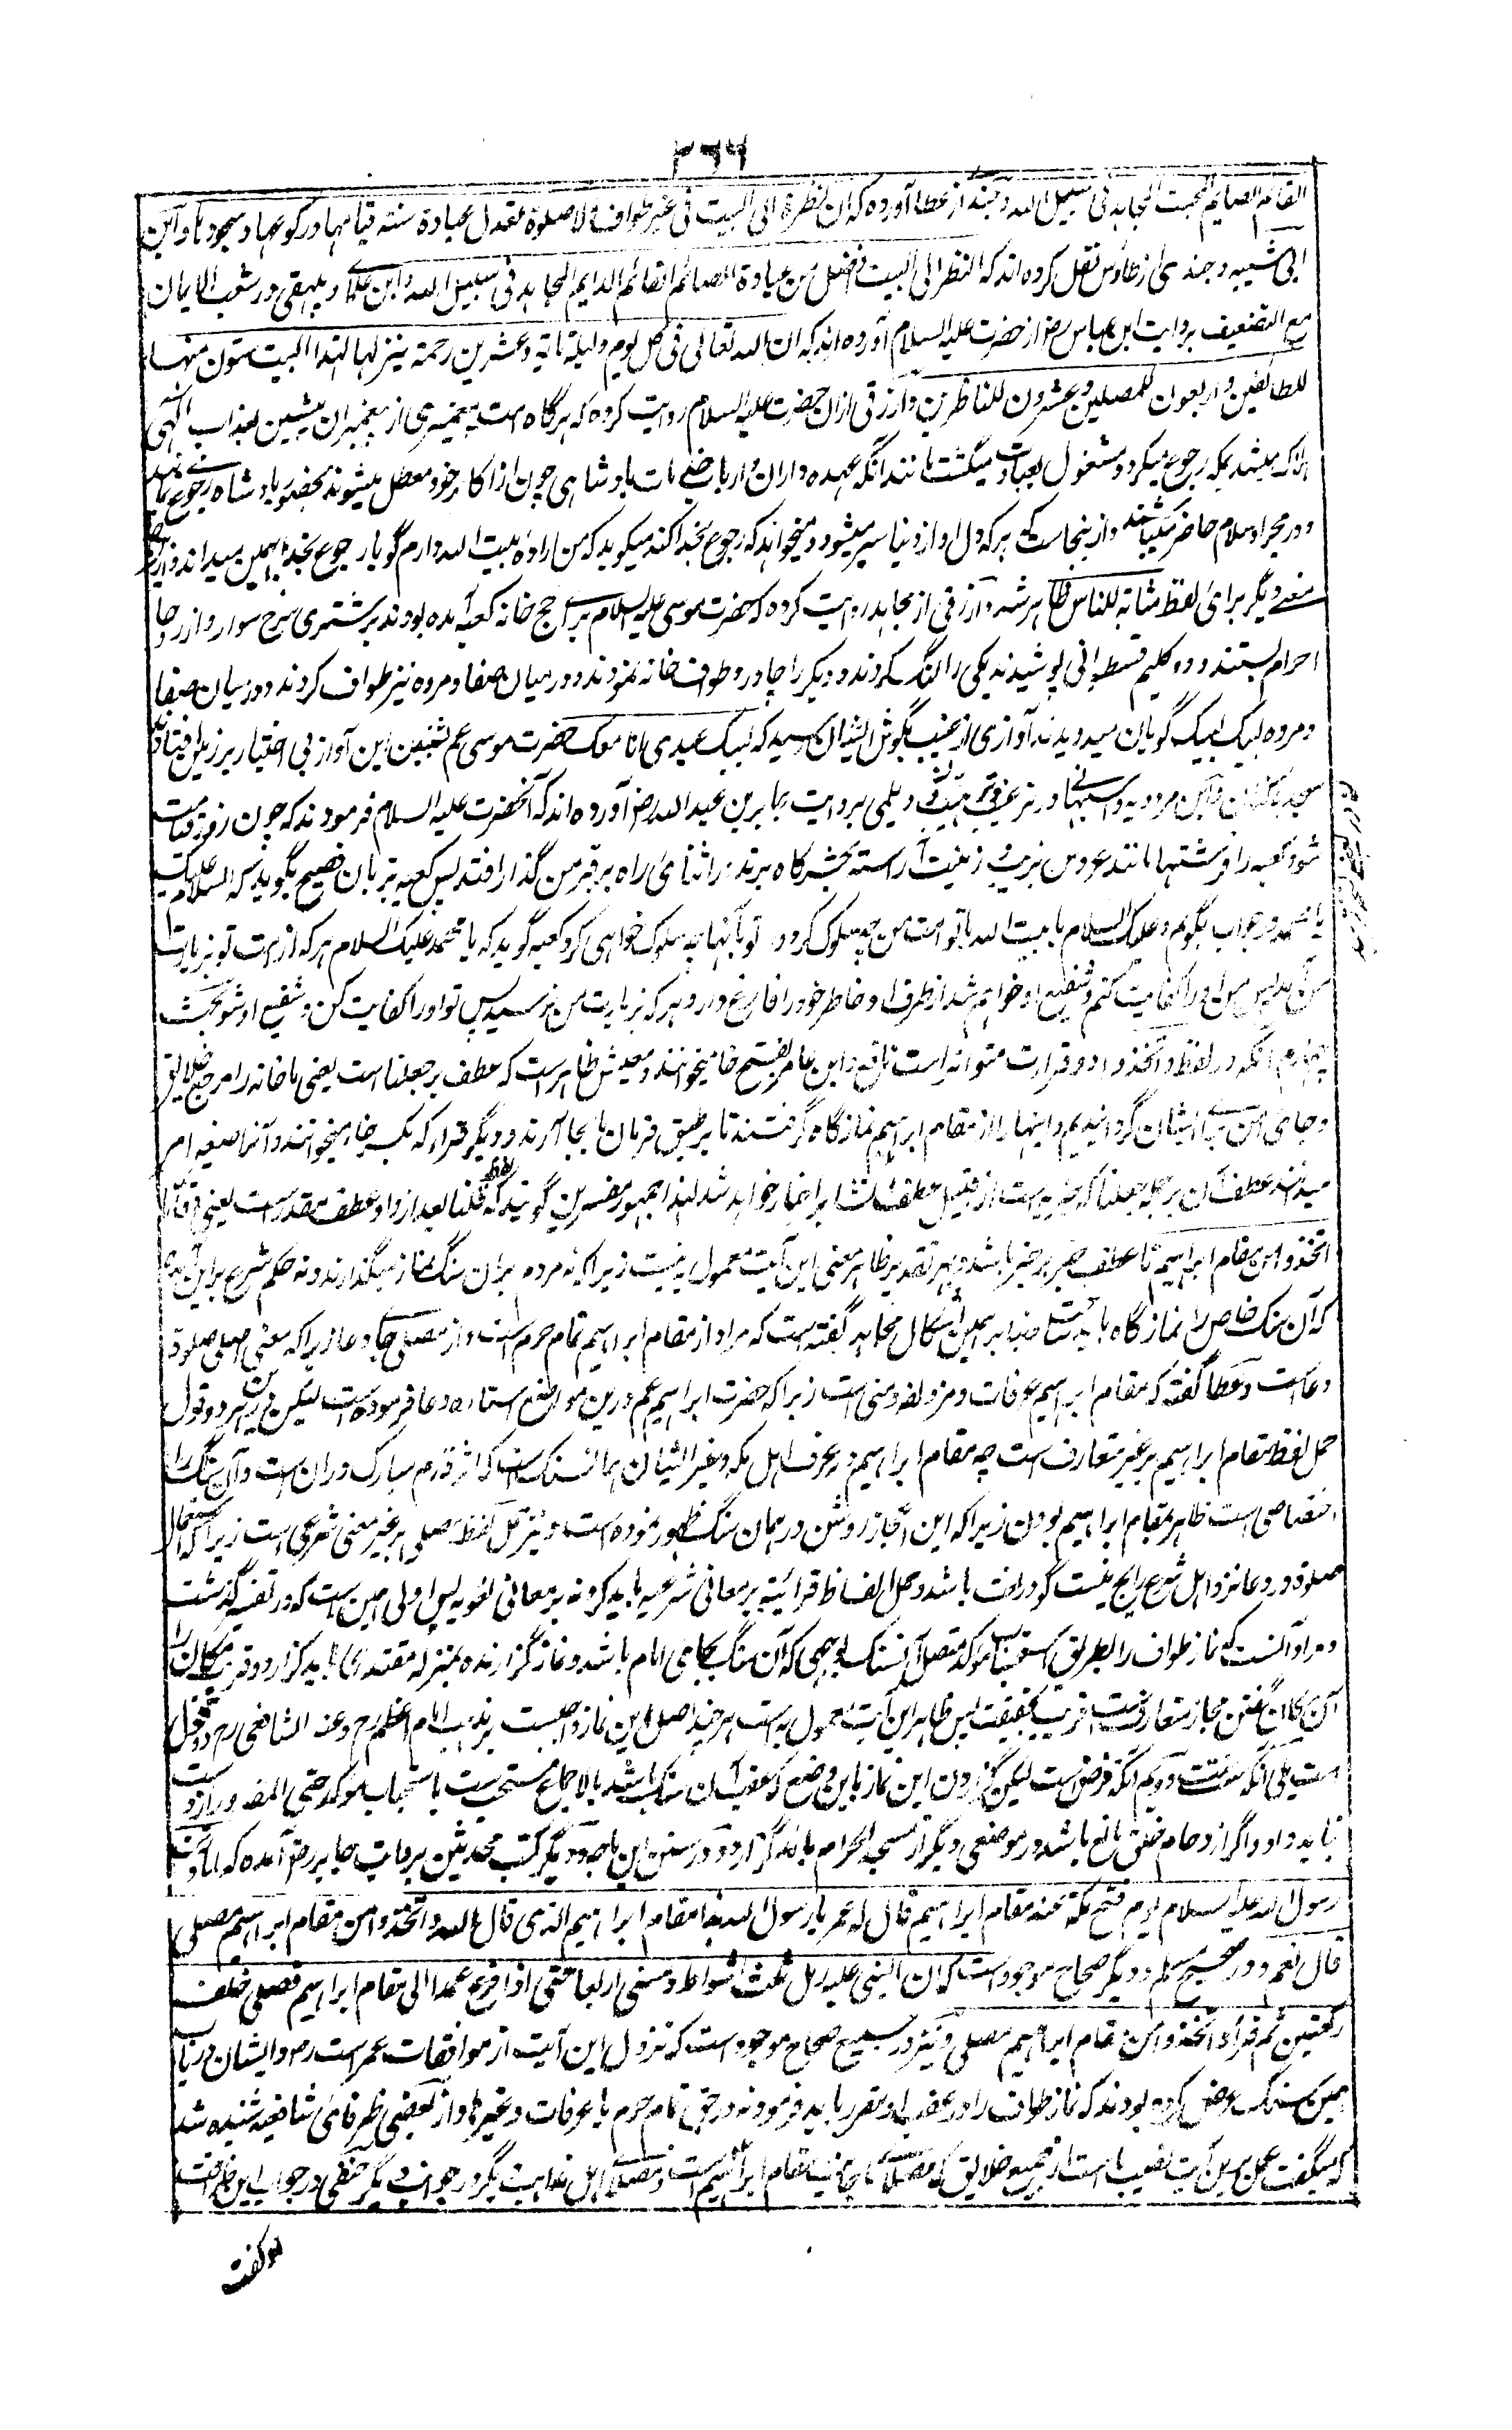 ۳۶۶
القائم الصائم المخبت المجاهد فی سبیل الله و جندی از عطا آورده که ان نظرة الی البیت فی غیر طواف و لا صلوة تعدل عبادة سنة قیامها و رکوعها و سجودها و ابن
ابی شیبه و جندی از طاوس نقل کرده اند که النظر الی البیت افضل من عبادة الصائم القائم الدایم المجاهد فی سبیل الله و ابن عدی و بیهقی در شعب الایمان
مع التضعیف بروایت ابن عباس رض از حضرت علیه السلام آورده اند که ان الله تعالی فی کل یوم ولیلة مائة و عشرین رحمة ینزلها لهذا البیت ستون منها
للطائفین و اربعون للمصلین و عشرون للناظرین و ازرقی ازان حضرت علیه السلام روایت کرده که هر گاه امت پیغمبری از پیغمبران پیشین بعذاب الهی
هلاک میشد بمکه رجوع میکرد و مشغول بعبادت میگشت مانند آنکه عهده داران و ارباب خدمات بادشاهی چون از کار خود معطل میشوند بحضور بادشاه رجوع
و در مجرا و سلام حاضر میباشند و ازینجاست که هر که دل او از دنیا سیر میشود و میخواهد که رجوع بخدا کند میگوید که من اراده بیت الله دارم گویا رجوع بخدا همین میداند
معنی دیگر برای لفظ مثابة للناس ظاهر شد و ازرقی از مجاهد روایت کرده که حضرت موسی علیه السلام برای حج خانه کعبه آمده بودند بر شتری سرخ سوار و از روحا
احرام بستند و دو گلیم قسطوانی پوشیدند یکی را لنگ کردند و دیگر را چادر و طواف خانه نمودند و در میان صفا و مروه نیز طواف کردند و در میان صفا
و مروه لبیک لبیک گویان میدویدند آوازی از غیب بگوش ایشان رسید که لبیک عبدی انا معک حضرت موسی عم بشنیدن این آواز بی اختیار بر زمین افتادند
سجده کنان و ابن مردویه و اصبهانی در ترغیب و دیلمی بروایت جابر بن عبد الله رض آورده اند که آنحضرت علیه السلام فرمودند که چون روز قیامت
شود کعبه را فرشتها مانند عروس بزیب و زینت آراسته بحشرگاه برند در اثنای راه بر قبر من گذار افتد پس کعبه بزبان فصیح بگوید که السلام علیک
یا محمد در جواب بگویم و علیک السلام یا بیت الله با تو امت من چه سلوک کرد و تو بآنها چه سلوک خواهی کرد کعبه گوید که یا محمد علیک السلام هر که از امت تو بزیارت
من آمد پس من او را کفایت کنم و شفیع او خواهم شد از طرف او خاطر خود را فارغ دار و هر که بزیارت من نرسید پس تو او را کفایت کن و شفیع او شو بحث
چهارم آنکه در لفظ و اتخذوا دو قراءت متواتر است نافع و ابن عامر بفتح خا میخوانند و معنیش ظاهر است که عطف بر جعلنا است یعنی ما خانه را مرجع خلایق
و جای امن برای ایشان گردانیدیم و اینها از مقام ابراهیم نمازگاه گرفتند تا بر طبق فرمان ما بجا آرند و دیگر قراء که بکسر خا میخوانند و آنرا صیغه امر
میدانند عطف آن بر جمله جعلنا که خبریه است از قبیل عطف انشا بر اخبار خواهد شد لهذا جمهور مفسرین گویند که لفظ قلنا بعد از واو عطف مقدر است یعنی و قلنا
اتخذوا من مقام ابراهیم تا عطف خبر بر خبر باشد و بهر تقدیر ظاهر معنی این آیت معمول به نیست زیرا که نه مردم بران سنگ نماز میگذارند و نه حکم شرع برین آمده
که آن سنگ خاص را نمازگاه باید ساخت بنابر همین اشکال مجاهد گفته است که مراد از مقام ابراهیم تمام حرم است و از مصلی جای دعا زیرا که معنی اصلی صلوة
دعاست و عطا گفته که مقام ابراهیم عرفات و مزدلفه و منی است زیرا که حضرت ابراهیم عم درین مواضع استاده دعا فرموده است لیکن درین هر دو قول
حمل لفظ مقام ابراهیم بر غیر متعارف است چه مقام ابراهیم در عرف اهل مکه و غیر ایشان همان سنگ است که اثر قدم مبارک دران است و آن سنگ را
اختصاصی است ظاهر بمقام ابراهیم بودن زیرا که این اعجاز روشن در همان سنگ ظهور نموده است و نیز حمل لفظ مصلی بر غیر معنی شرعی است زیرا که استعمال
صلوة در دعا نزد اهل شرع رایج نیست گو در لغت باشد و حمل الفاظ قرآنیه بر معانی شرعیه باید کرد نه بر معانی لغویه پس اولی همین است که در تفسیر گذشت
و مراد آنست که نماز طواف را بطریق استحباب موکد متصل آن سنگ بوجهی که آن سنگ بجای امام باشد و نماز گزارنده بمنزله مقتدی باید گزارد و قرب مکان را
آن مکان گفتن مجاز متعارف است قریب بحقیقت پس ظاهر این آیت معمول به است هر چند اصل این نماز واجبست بمذهب امام اعظم رح و عند الشافعی رح دو قول
است یکی آنکه سنت است و دویم آنکه فرض است لیکن گزاردن این نماز باین وضع که عقب آن سنگ باشد بالاجماع مستحب است باستحباب موکد حتی المقدور از دست
نباید داد و اگر ازدحام خلق مانع باشد در موضعی دیگر از مسجد الحرام باید گزارد و در سنن ابن ماجه و دیگر کتب محدثین بروایت جابر رض آمده که لما وقف
رسول الله علیه السلام یوم فتح مکة عند مقام ابراهیم قال له عمر یا رسول الله هذا مقام ابراهیم الذی قال الله و اتخذوا من مقام ابراهیم مصلی
قال نعم و در صحیح مسلم و دیگر صحاح موجود است که ان النبی علیه رمل ثلث اشواط و مشی اربعا حتی اذا فرغ عمد الی مقام ابراهیم فصلی خلفه
رکعتین ثم قرأ و اتخذوا من مقام ابراهیم مصلی و نیز در جمیع صحاح موجود است که نزول این آیت از موافقات عمر است رض و ایشان درباب
همین سنگ عرض کرده بودند که نماز طواف را در عقب او مقرر باید فرمود نه در حق تمام حرم یا عرفات و غیرها و از بعضی ظرفای شافعیه شنیده شد
که میگفت عمل برین آیت نصیب ماست از جمیع خلایق که مصلای ما جانب مقام ابراهیم است و مصلای اهل مذاهب دیگر در جوانب دیگر حنفی در جواب این ظرافت
او گفت